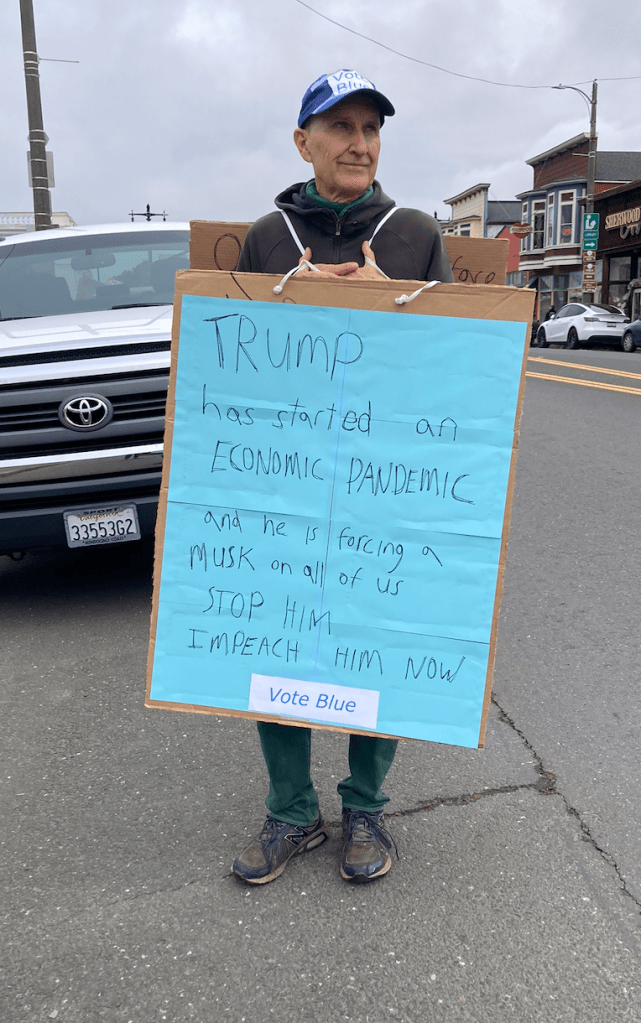 Vote
Blue
SHERWOOD
fore
TRUMP
has started an
ECONOMIC PANDEMIC
and he is forcing a
MUSK on all of us
STOP HIM
IMPEACH HIM NOW
Vote Blue
California
33553G2